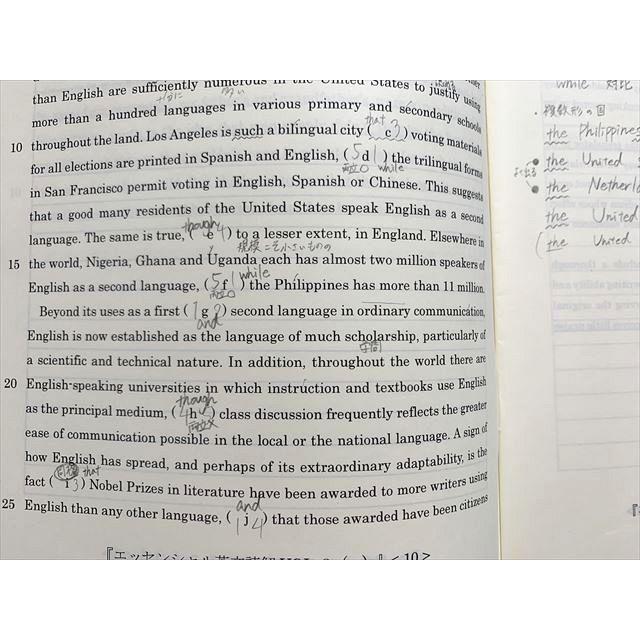 than English are sufficiently numerous in the United States to justify using
more than a hundred languages in various primary and secondary schools
that
10 throughout the land. Los Angeles is such a bilingual city ( c ) voting materials
for all elections are printed in Spanish and English, ( d ) the trilingual forms
while
in San Francisco permit voting in English, Spanish or Chinese. This suggests
that a good many residents of the United States speak English as a second
though
language. The same is true, ( e ) to a lesser extent, in England. Elsewhere in
規模こそ小さいものの
15 the world, Nigeria, Ghana and Uganda each has almost two million speakers of
while
English as a second language, ( f ) the Philippines has more than 11 million.
Beyond its uses as a first ( g ) second language in ordinary communication,
and
English is now established as the language of much scholarship, particularly of
a scientific and technical nature. In addition, throughout the world there are
20 English-speaking universities in which instruction and textbooks use English
though
as the principal medium, ( h ) class discussion frequently reflects the greater
ease of communication possible in the local or the national language. A sign of
how English has spread, and perhaps of its extraordinary adaptability, is the
that
fact ( i ) Nobel Prizes in literature have been awarded to more writers using
and
25 English than any other language, ( j ) that those awarded have been citizens
while 対比
・複数形の国
the Philippines
the United
the Netherl
the United
( the United